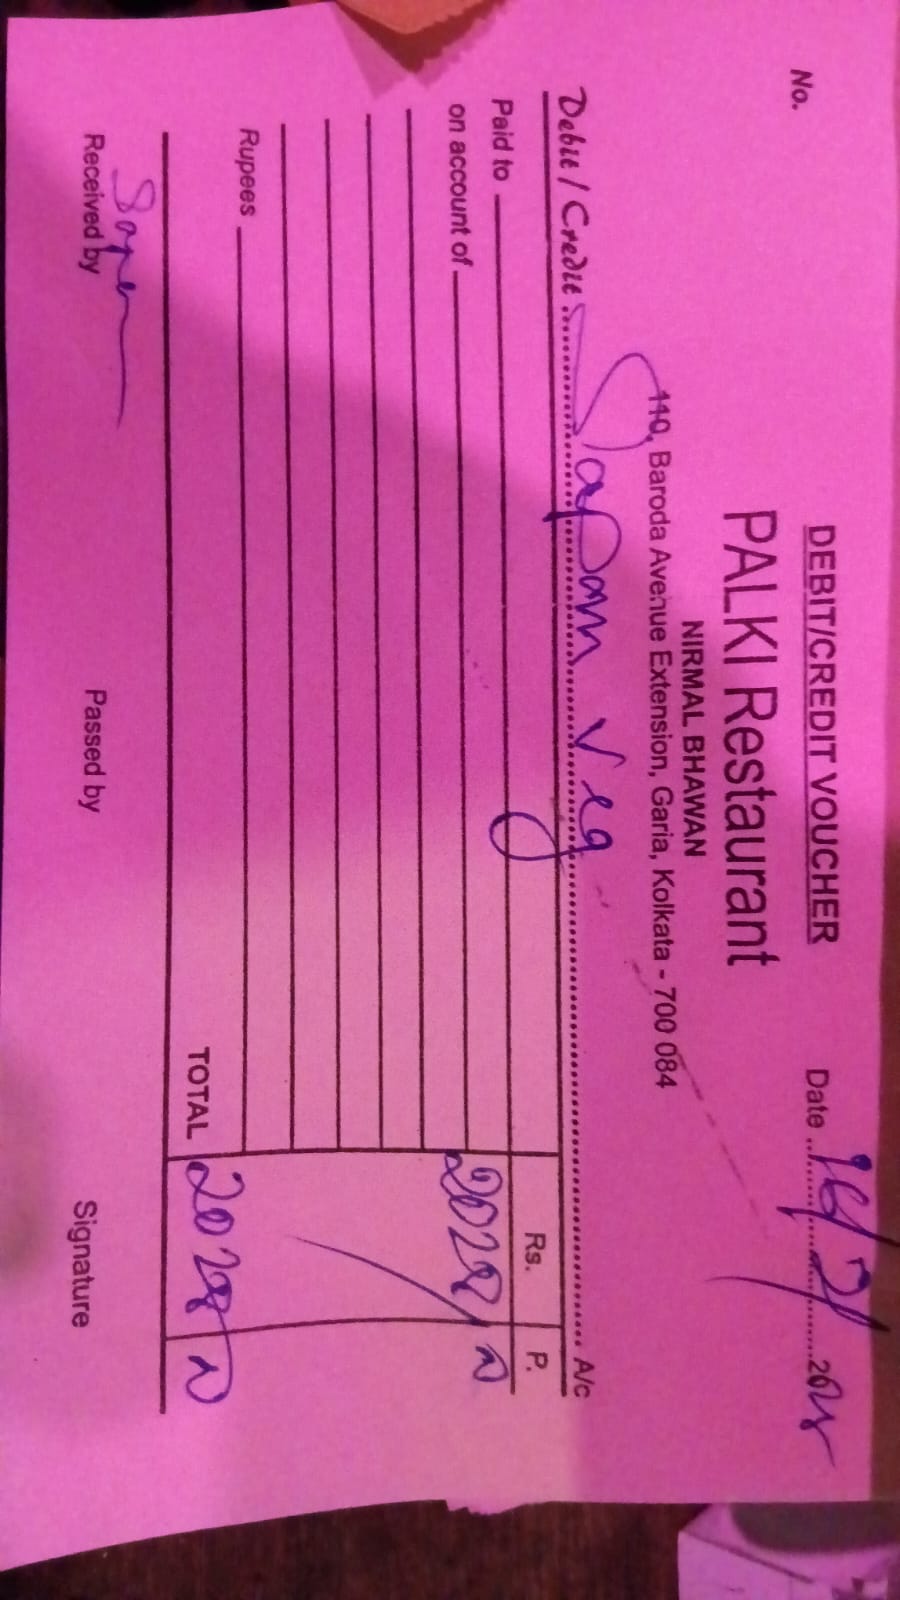 DEBIT/CREDIT VOUCHER
No.
Date
PALKI Restaurant
NIRMAL BHAWAN
110, Baroda Avenue Extension, Garia, Kolkata - 700 084
Debit / Credit Sapan veg A/c
Paid to Rs. P.
on account of 2028/
Rupees
TOTAL 2028
Received by Passed by Signature